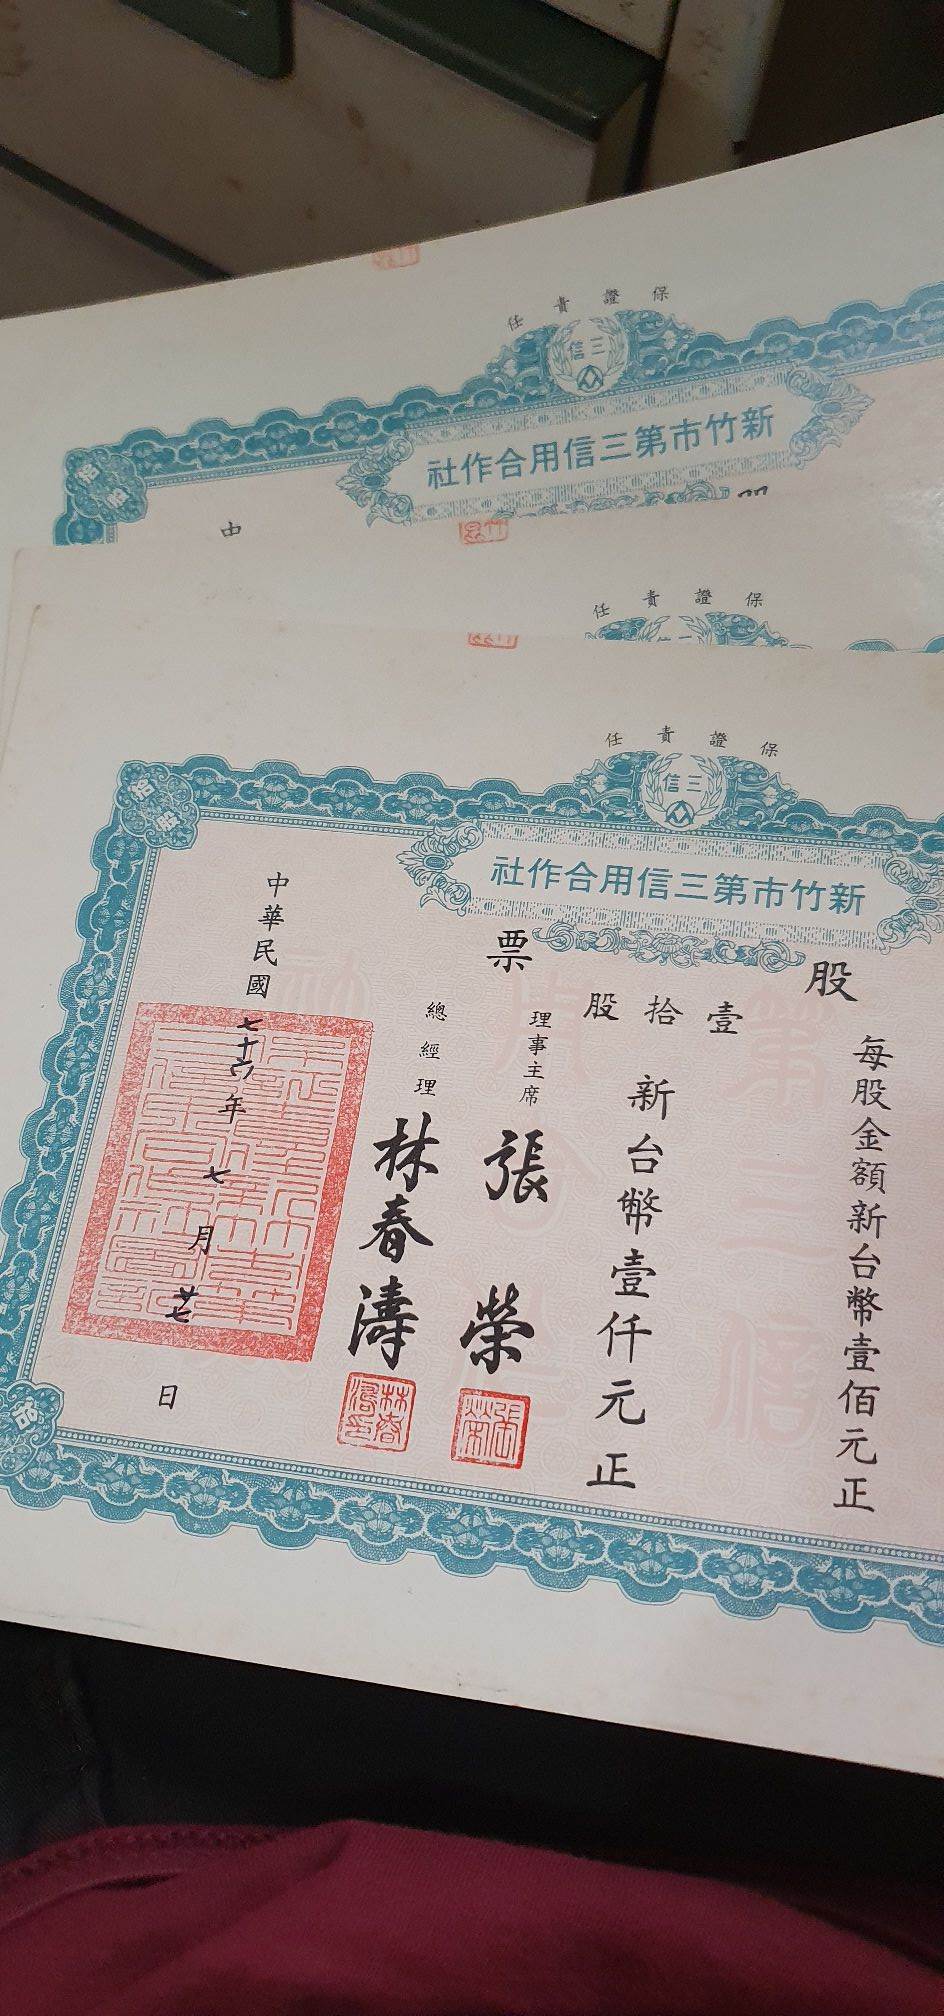 保證責任
三信
新竹市第三信用合作社
拾
股
中
保證責任
三信
保證責任
三信
新竹市第三信用合作社
拾
股
股票
每股金額新台幣壹佰元正
壹拾股
新台幣壹仟元正
理事主席 張榮
張榮
總經理 林春濤
林春濤印
中華民國七十六年七月廿七日
拾
第三信